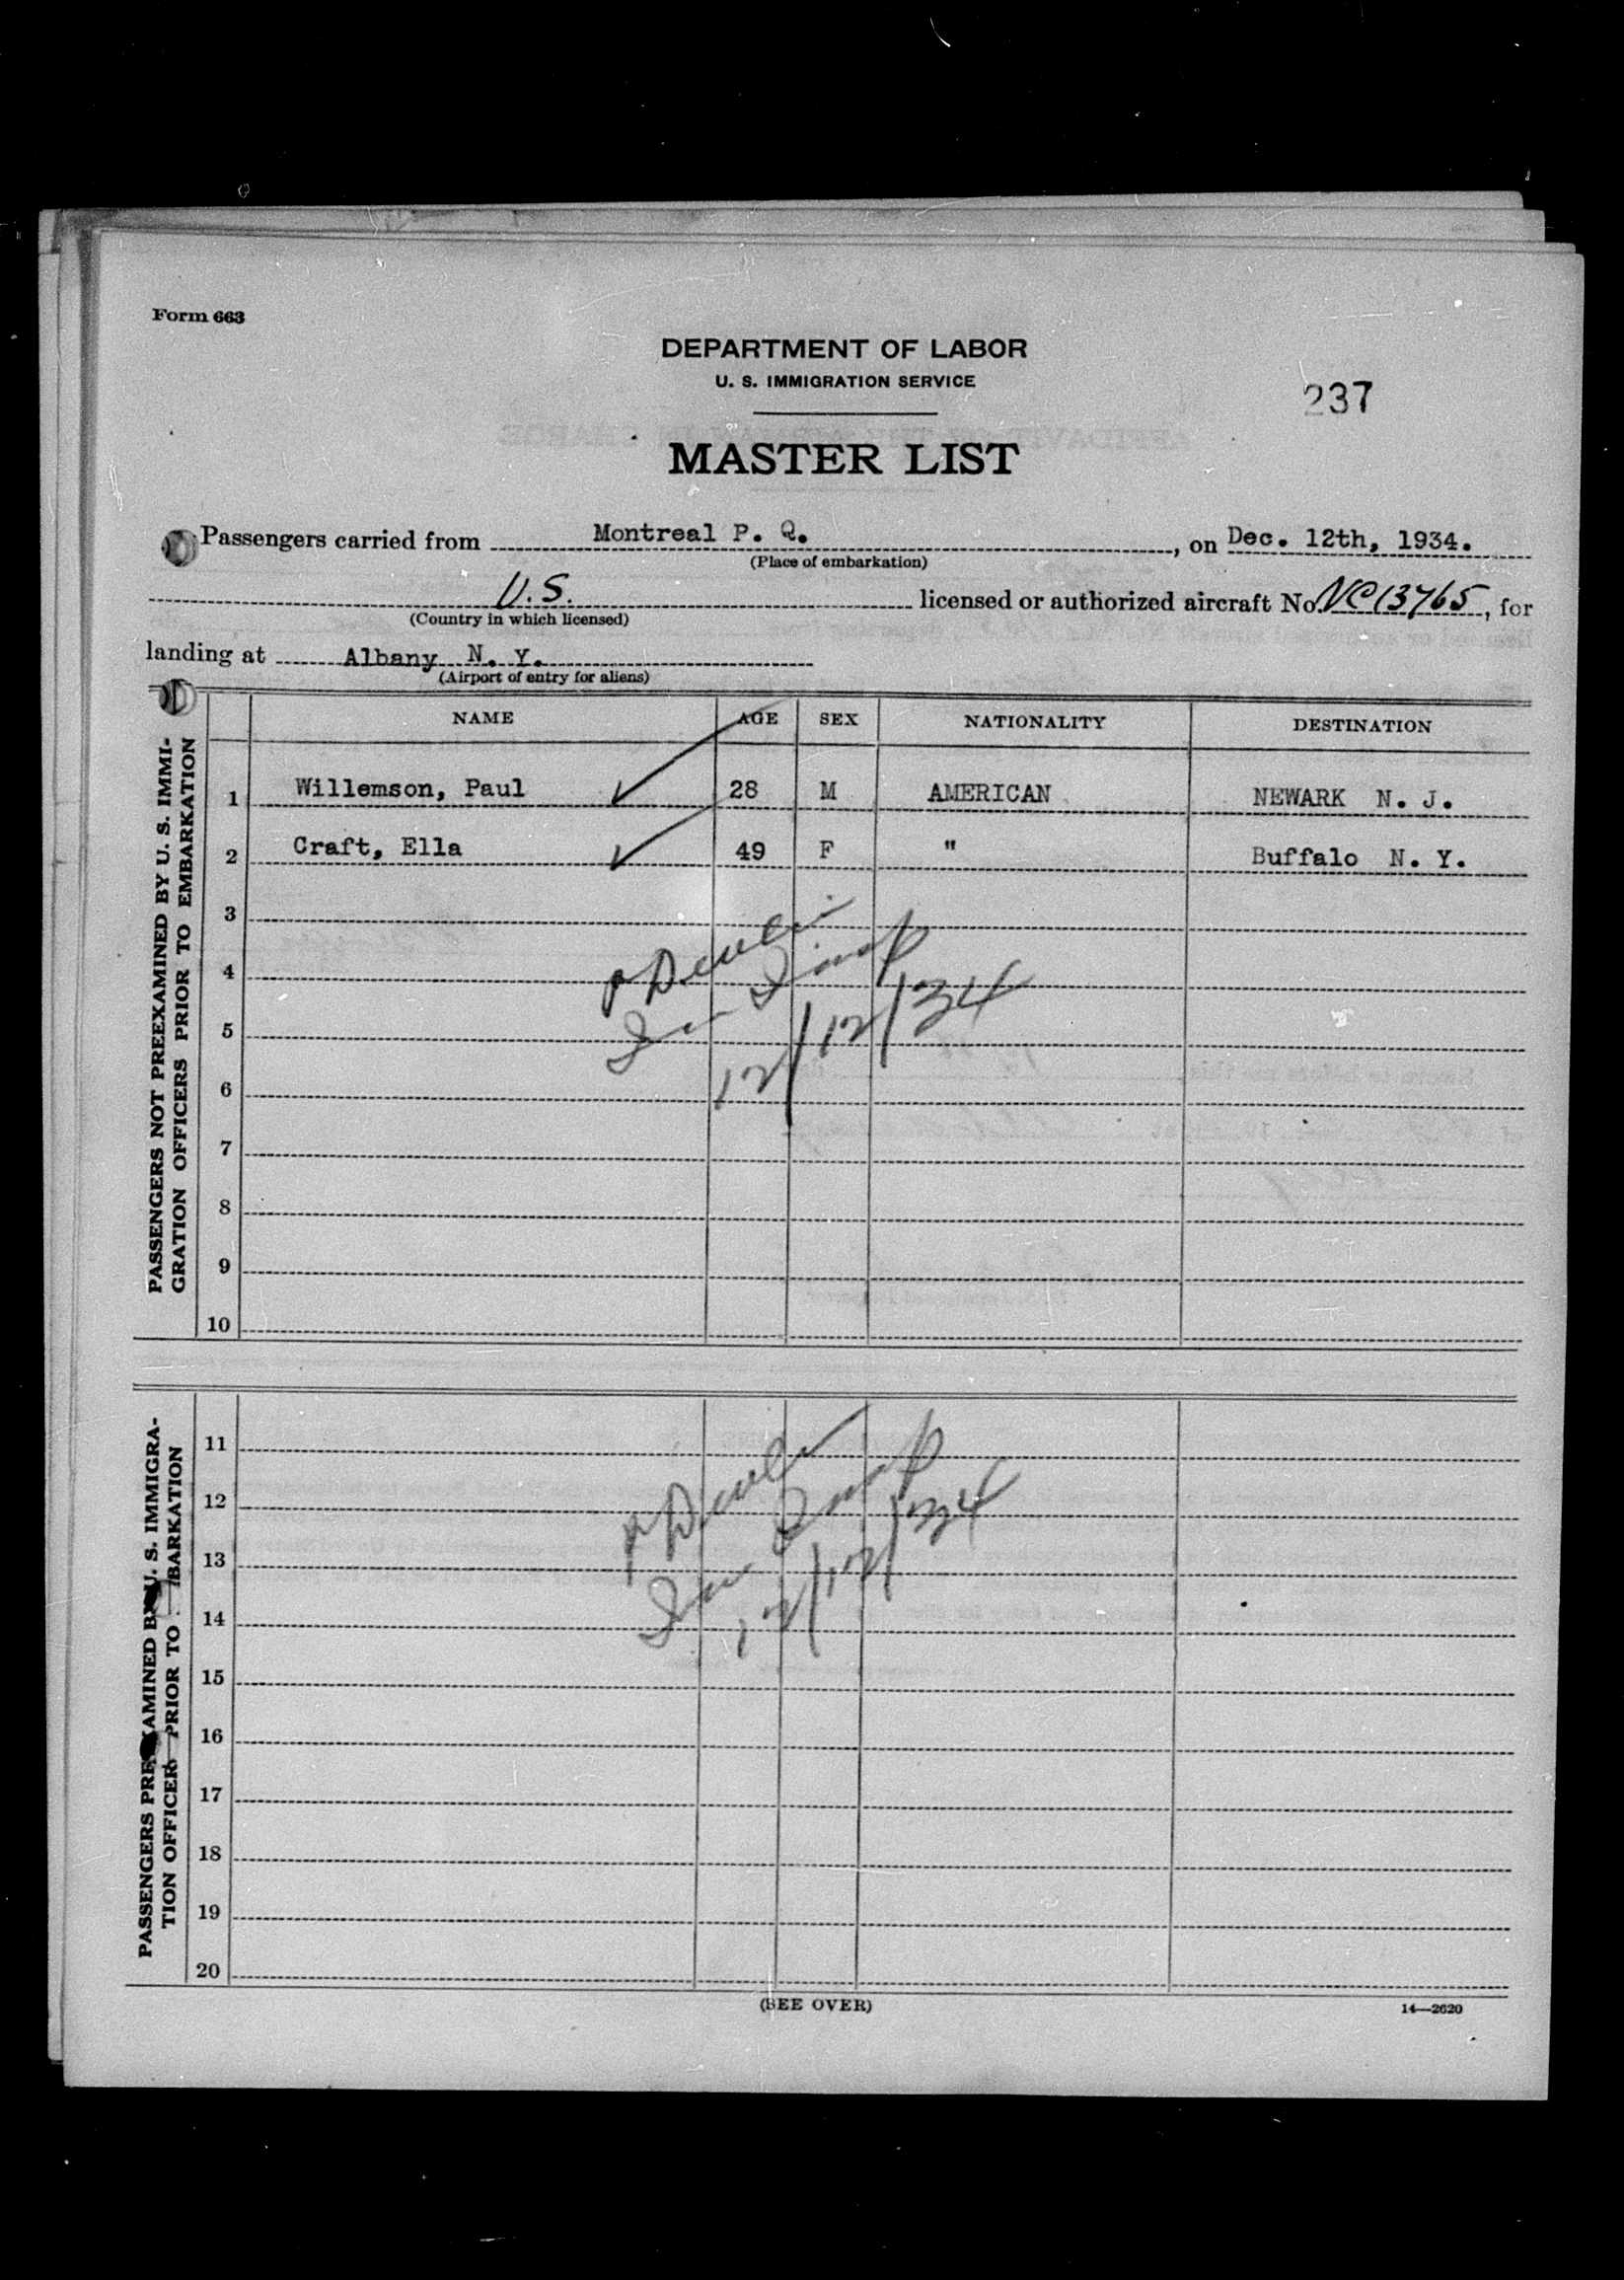 Form 663
DEPARTMENT OF LABOR
U. S. IMMIGRATION SERVICE
237
MASTER LIST
Passengers carried from Montreal P. Q., on Dec. 12th, 1934.
(Place of embarkation)
U.S. licensed or authorized aircraft No. NC13765, for
(Country in which licensed)
landing at Albany N. Y.
(Airport of entry for aliens)
NAME AGE SEX NATIONALITY DESTINATION
PASSENGERS NOT PREEXAMINED BY U. S. IMMI-
GRATION OFFICERS PRIOR TO EMBARKATION
1 Willemson, Paul 28 M AMERICAN NEWARK N. J.
2 Craft, Ella 49 F " Buffalo N. Y.
3
4
5
6
7
8
9
10
12/12/34
PASSENGERS PREEXAMINED BY U. S. IMMIGRA-
TION OFFICERS PRIOR TO EMBARKATION
11
12
13
14
15
16
17
18
19
20
12/12/34
(SEE OVER)
14—2620